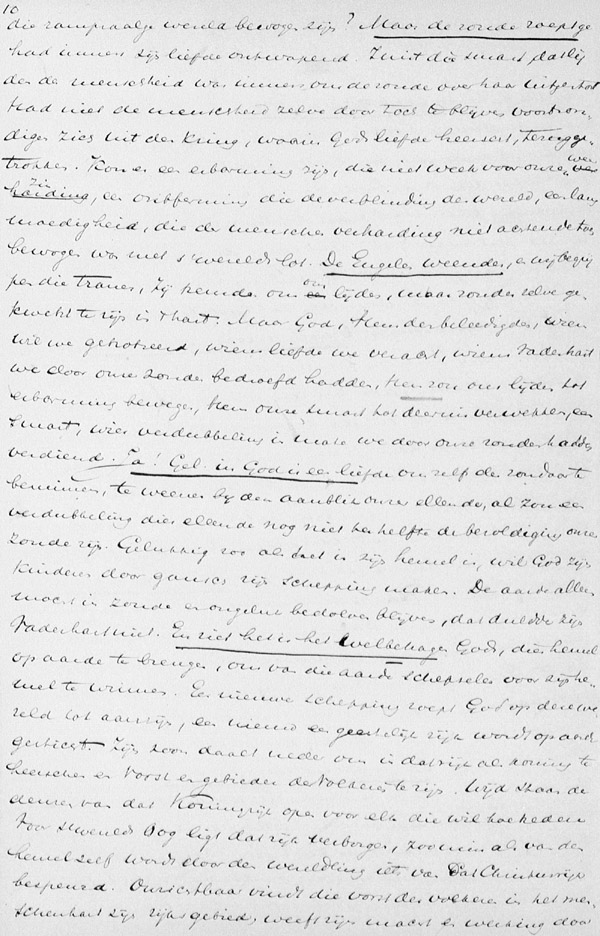 10
die rampzalige wereld bewogen zijn? Maar de zonde zoo past ge
had immers zijn liefde ontwapend. Juist die smart, dat lij
den der menschheid was immers om de zonde over haar uitgestort
Had niet de menschheid zelve door toch te blijven voortzon-
digen zich uit den kring, waarin Gods liefde heerscht, terugge-
trokken. Kon er een erbarming zijn, die niet week voor onze
een ontferming die de verblinding der wereld, een lang
moedigheid, die der menschen verharding niet achtende toch
bewogen was met 's werelds lot. De Engelen weenden, en wij begrij
pen die tranen, zij kenden ons lijden, maar zonder zelve ge
kwetst te zijn in 't hart. Maar God, Hem den beleedigde, wiens
wil we getrotseerd, wiens liefde we veracht, wiens Vaderhart
we door onze zonden bedroefd hadden, Hem zou ons lijden tot
erbarming bewegen, Hem onze smart tot deernis verwekken, een
smart, wier verdubbeling in mate we door onze zonde hadden
verdiend. Ja! Gel. in God is een liefde om zelf den zondaar te
beminnen, te weenen bij den aanblik onzer ellende, al zou een
verdubbeling dier ellende nog niet ter helfte de bezoldiging onzer
zonde zijn. Gelukkig zoo als het in zijn hemel is, wil God zijn
kinderen door gansch zijn schepping maken. De aarde alleen
mocht in zonde en ongeluk bedolven blijven, dat duldde zijn
Vaderhart niet. En ziet het is het welbehagen Gods, dien hemel
op aarde te brengen, om van die aarde schepselen voor zijn he-
mel te winnen. Een nieuwe schepping roept God op deze we
reld tot aanzijn, een nieuw een geestelijk rijk wordt op aarde
gesticht. Zijn zoon daalt neder om in dat rijk als koning te
heerschen en Vorst en gebieder der Volkeren te zijn. Wijd staan de
deuren van dat Koningrijk open voor elk die wil toetreden
Voor 's werelds oog ligt dat rijk verborgen, zoomin als van den
hemel zelf wordt door den wereldling iets van dat Christusrijk
bespeurd. Onzichtbaar vindt die vorst der volkeren in het men
schenhart zijn rijksgebied, weeft zijn macht en werking door